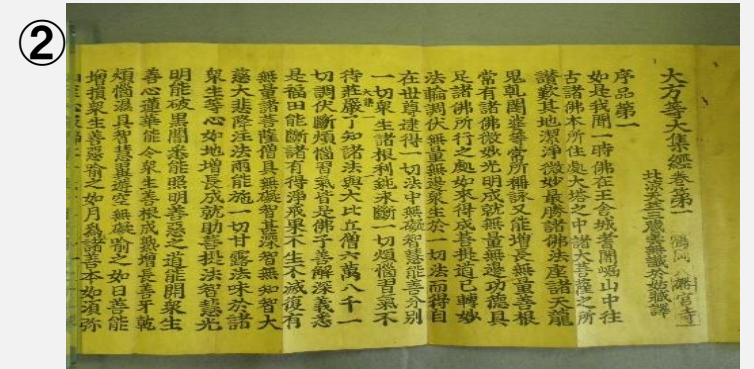 ②
大方等大集經卷第一
北涼天竺三藏曇無讖於姑臧譯
序品第一
如是我聞一時佛在王舍城耆闍崛山中往
古諸佛本所住處大塔之中諸大菩薩之所
讚歎其地潔淨微妙最勝諸佛法座諸天龍
鬼乾闥婆等常所稱詠又能增長無量善根
常有諸佛微妙光明成就無量無邊功德具
足諸佛所行之處如來得成菩提道已轉妙
法輪調伏無量無邊衆生於一切法而得自
在世尊逮得一切法中無礙智慧能善分別
一切衆生諸根利鈍永斷一切煩惱習氣不
大集一
待莊嚴了知諸法與大比丘僧六萬八千一
切調伏斷煩惱習氣皆是佛子善解深義悉
是福田能斷諸有得淨戒果不生不滅復有
無量諸菩薩僧具無礙智甚深智無知智大
慈大悲降注法雨能施一切甘露法味於諸
衆生等心如地增長成就助菩提法智慧光
明能破黑闇悉能照明善惡之道能開衆生
善心蓮華能令衆生善根成熟增長善牙乾
煩惱濕具智慧與遊空無礙喻之如日善能
增損衆生善惡喻之如月為諸善本如須彌